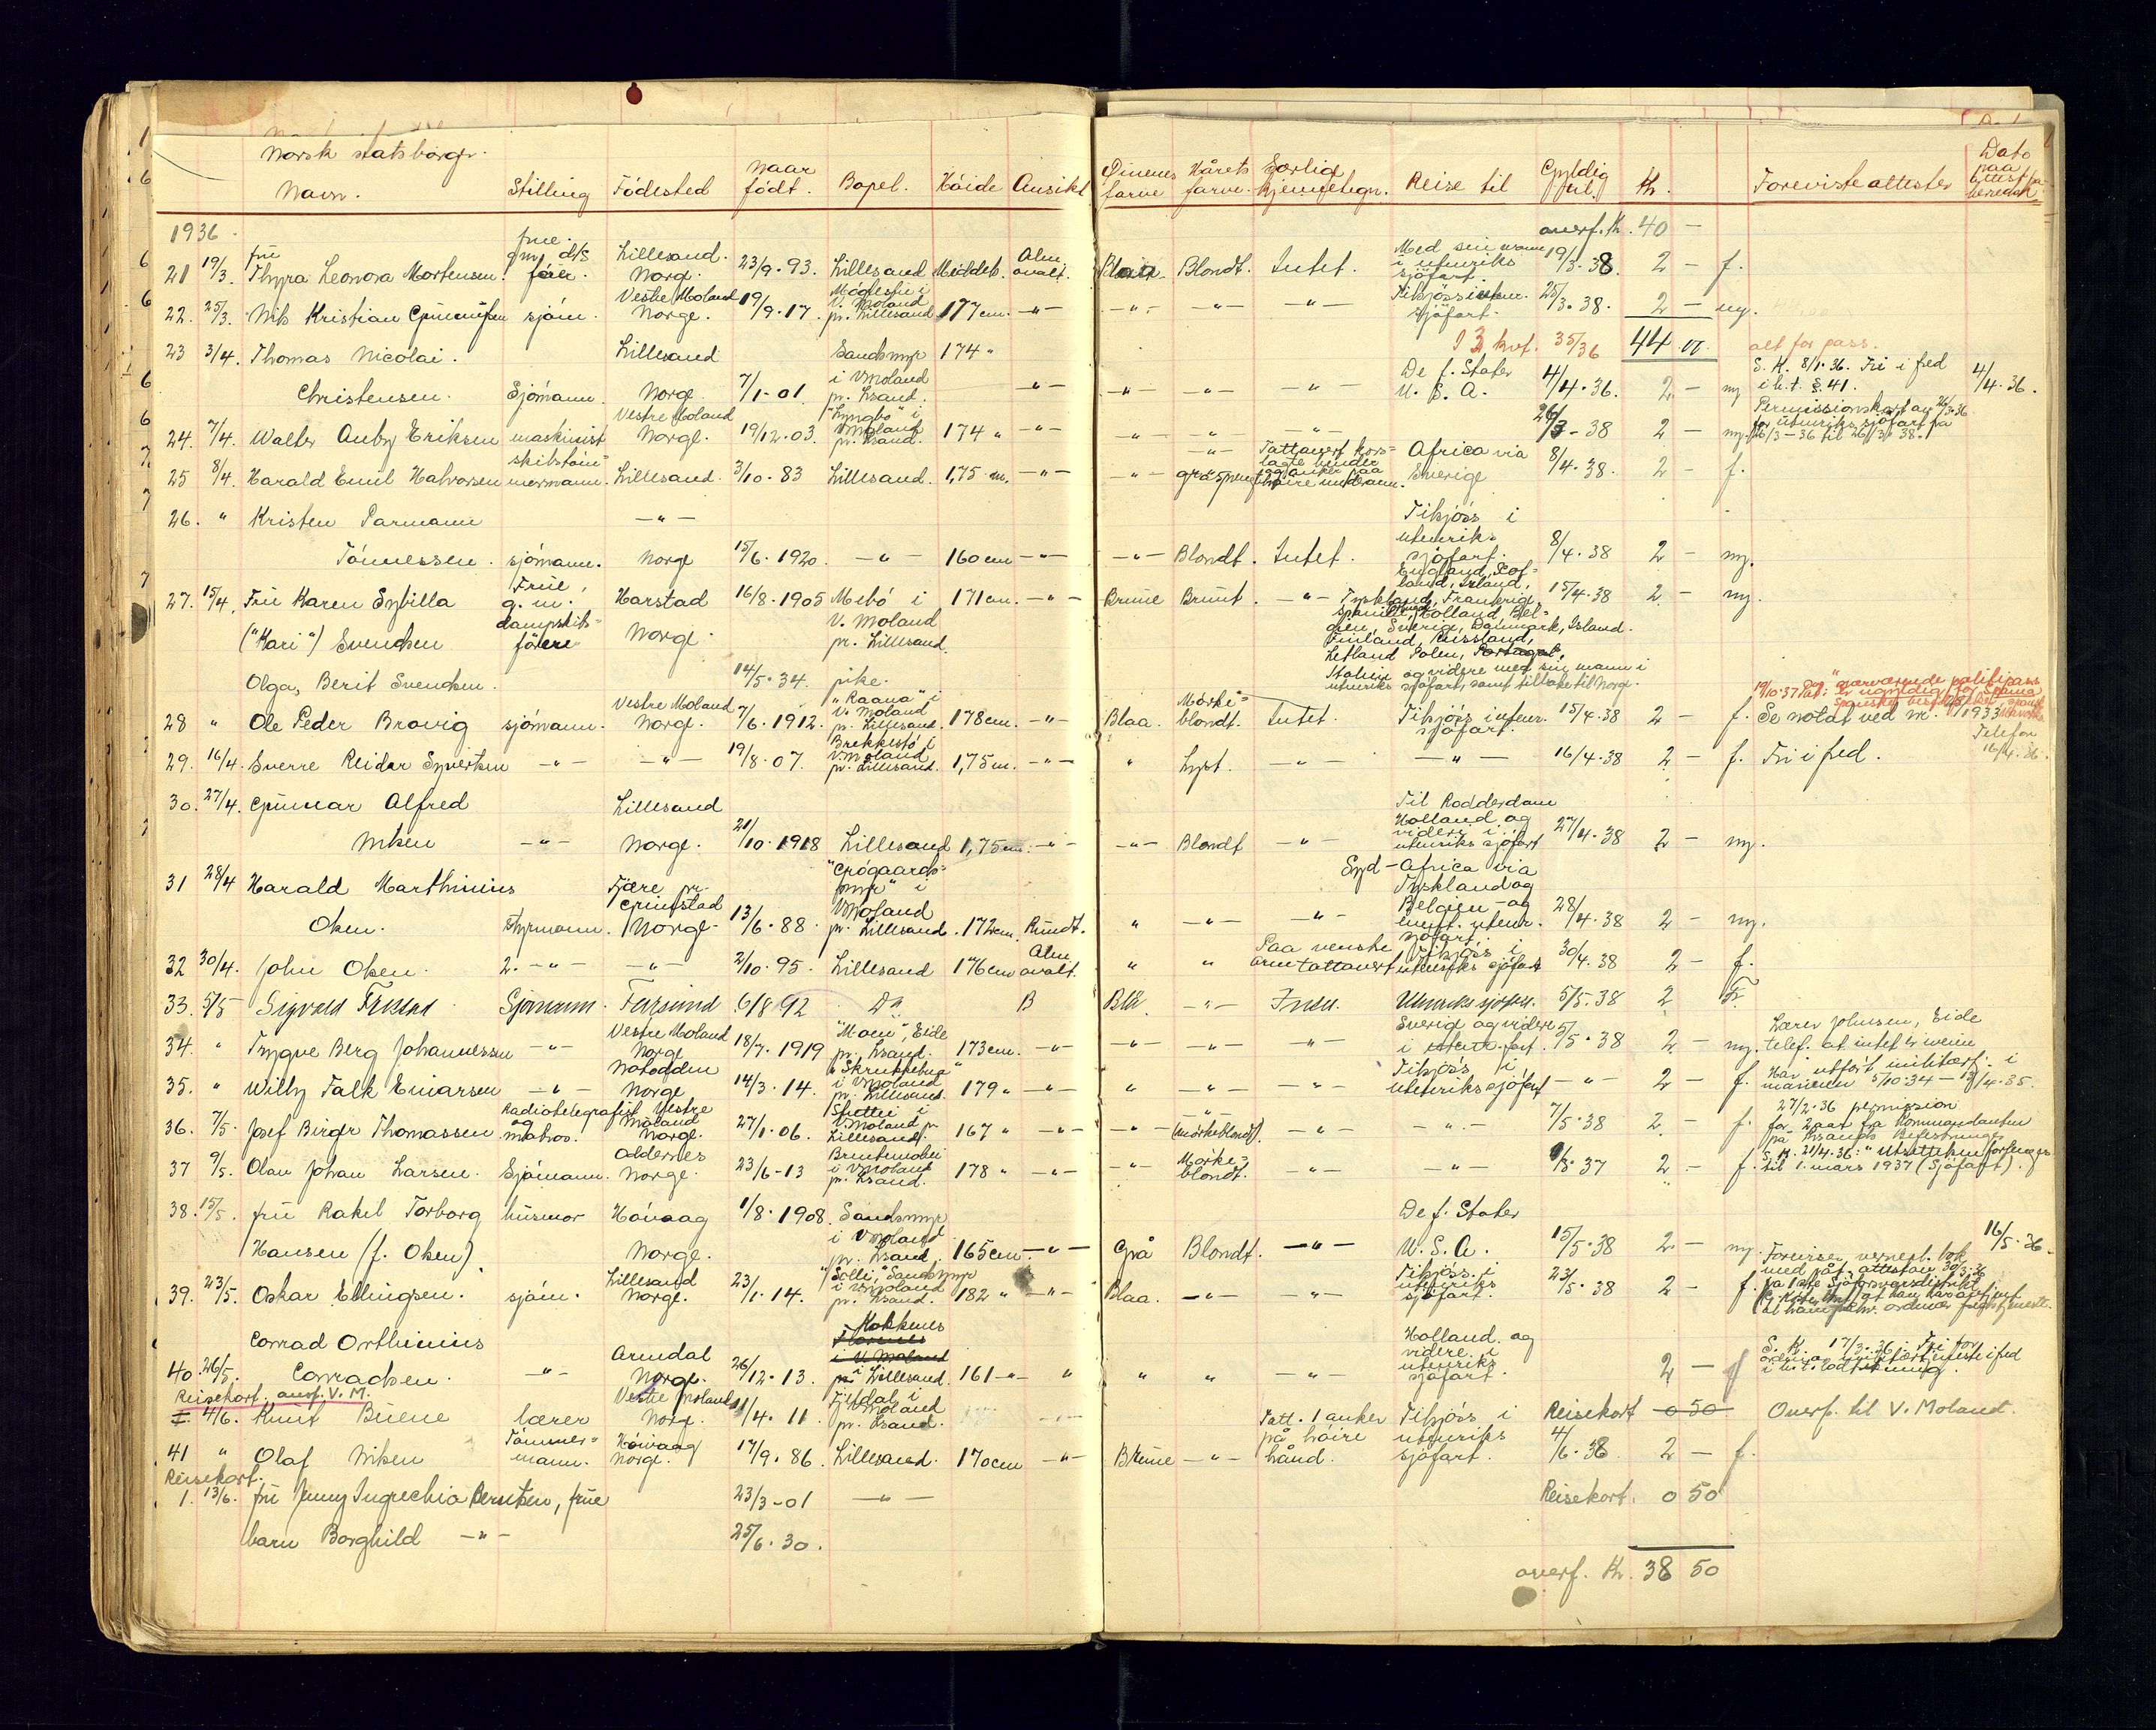 Norsk statsborgr.
Navn. Stilling Födested Naar födt. Bopel. Höide Ansikt Öinenes farve Hårets farve. Særlig kjennetegn. Reise til Gyldig til. Kr. Foreviste attester Dato paa attest
1936. overf. Kr. 40 —
21 19/3. frü Thyra Leonora Mortensen. frue. gm. d/s förer. Lillesand. Norge. 23/9. 93. Lillesand Middels. Alm. ovalt. Blaa Blondt. Intet. Med sin mann i utenriks sjöfart. 19/3. 38. 2 — f.
22. 25/3. Nils Kristian sjöm. Vestre Moland Norge. 19/9. 17. V. Moland pr. Lillesand 177 cm. —"— —"— —"— —"— Tilsjöss i uten. sjöfart. 25/3. 38. 2 — ny.
kvt. 35/36 44 00 alt for pass.
23 3/4. Thomas Nicolai Christensen. Sjömann. Lillesand Norge. 7/1-01 Sandsmyr i V Moland pr. Lsand. 174 " —"— —"— —"— —"— De f. Stater U. S. A. 4/4. 36. 2 — ny S. K. 8/1. 36. Fri i fred i h. t. §. 41. 4/4. 36.
24. 7/4. Walter Auby Eriksen maskinist Vestre Moland Norge. 19/12. 03. "Lyngbo" i V Moland pr. Lsand. 174 " —"— —"— —"— —"— 26/3 - 38 2 — ny. Permissionskort av 26/3-36 for utenriks sjöfart fra 26/3-36 til 26/3 38.
25 8/4. Harald Emil Halvorsen skibstömmermann. Lillesand. 3/10. 83 Lillesand. 1,75 m. —"— —"— Tattovert korslagte hender og anker paa höire underarm. Africa via Sverige 8/4. 38. 2 — f.
26. " Kristen Parmann Tönnessen. sjömann. —"— Norge 15/6. 1920. —"— 160 cm —"— —"— Blondt. Intet. Tilsjöss i utenriks sjöfart. 8/4. 38 2 — ny.
27. 15/4. Frü Karen Sybilla ("Kari") Svendsen Frue, g. m. dampskibsförere Harstad Norge. 16/8. 1905 Mebö i V. Moland pr. Lillesand. 171 cm. —"— Brune Brunt. —"— England, Skotland, Irland, Tyskland, Frankrig, Spanien, Holland, Belgien, Sverig, Danmark, Island. Finland, Russland, Letland Polen, Portugal, Italien og videre med sin mann i utenriks sjöfart, samt tilbake til Norge. 15/4. 38 2 — ny.
Olga, Berit Svendsen. 14/5. 34. pike.
28 " Ole Peder Brovig sjömann. Vestre Moland Norge. 7/6. 1912. "Raana" i V. Moland pr. Lillesand. 178 cm. —"— Blaa. Mörkeblondt. Intet. Tilsjöss i utenr. sjöfart. 15/4. 38 2 — f. Se notat ved nr. 1933
29. 16/4. Sverre Reidar Syvertsen —"— —"— 19/8. 07. Brekkestö i V. Moland pr. Lillesand. 1,75 m. —"— " Lyst. —"— —"— 16/4. 38 2 — f. Fri i fred. Telefon 16/4. 36.
30. 27/4. Gunnar Alfred Nilsen —"— Lillesand Norge. 21/10. 1918 Lillesand 1,75 cm. —"— —"— Blondt —"— Til Rodderdam Holland og videre i utenriks sjöfart 27/4. 38 2 — ny.
31 28/4 Harald Marthinius Olsen. styrmann. Fjære pr. Grimstad Norge. 13/6. 88. "Grögaardsmyr" i V Moland pr. Lillesand. 172 cm. Rundt. " —"— —"— Syd-Africa via Tyskland og Belgien - og utenr. sjöfart. 28/4. 38 2 — ny.
32 30/4. John Olsen. 2. —"— —"— 2/10. 95. Lillesand 176 cm Alm. ovalt. " " Paa venstre arm tattovert Tilsjöss i utenriks sjöfart 30/4. 38 2 — f.
33. 5/5 Sigvald Sjömann. Farsund 6/8 92 Do. B Blå —"— Intet. Utenriks sjöfart. 5/5. 38 2 f.
34. " Trygve Berg Johannessen —"— Vestre Moland Norge 18/7. 1919 "Moen", Eide pr. Lsand. 173 cm. —"— —"— —"— —"— Sverig og videre i utenr. fart. 5/5. 38 2 — ny. Lærer Johnsen, Eide telef. at intet er i veien
35. " Willy Falk Einarsen —"— Notodden Norge 14/3. 14. i V Moland pr. Lillesand. 179 " —"— " " —"— Tilsjöss i utenriks sjöfart —"— 2 — f. Har utfört militærtj. i marinen 5/10. 34 — 13/4. 35.
36. 7/5. Josef Birger Thomassen Radiotelegrafist og matros. Vestre Moland Norge. 27/1. 06. V. Moland pr. Lillesand. 167 " —"— —"— (mörkeblondt). —"— —"— 7/5. 38 2 — f. 27/2. 36 permission for 2 aar fra Kommandanten på Krsands Befestninger
37 9/5. Olav Johan Larsen. Sjömann. Norge. 23/6-13 i V Moland pr. Lsand. 178 " —"— —"— Mörkeblondt. —"— —"— 9/3. 37 2 — f. S. K. 21/4. 36: "Utsettelsen forlenges til 1. mars 1937 (sjöfart).
38. 15/5. frü Rakel Torborg Hansen (f. Olsen). husmor Hövaag Norge. 1/8. 1908. Sandsmyr i V Moland pr. Lsand. 165 cm. —"— Grå Blondt. —"— De f. Stater U. S. A. 15/5. 38 2 — ny. 16/5. 36.
39. 23/5. Oskar Ellingsen. sjöm. Lillesand Norge. 23/1. 14. "Solli", Sandsmyr i V Moland pr. Lsand. 182 " —"— Blaa. —"— —"— Tilsjöss i utenriks sjöfart. 23/5. 38 2 — f. Foreviser vernepl. bok med påt. attestasjon 30/3. 36
40. 26/5. Conrad Orthinius Conradsen. —"— Arendal Norge. 26/12. 13. Kokkenes i Lillesand. 161 —"— " " " —"— Holland. og videre i utenriks sjöfart. 2 — f S. K. 17/3. 36: Fri for
Reisekort. overf. V. M.
I. 4/6. Knut Buene lærer Vestre Moland Norge. 11/4. 11 Tildal i V Moland pr. Lsand. Reisekort 0 50 Overf. til V. Moland.
41 " Olaf Nilsen Tömmermann. Hövaag Norge. 17/9. 86. Lillesand. 170 cm —"— Brune —"— Tatt. 1 anker på höire hånd. Tilsjöss i utenriks sjöfart. 4/6. 38. 2 — f.
Reisekort.
1. 13/6. frü Jenny Ingrechia Berntsen, frue 23/3-01 —"— Reisekort. 0 50
barn Borghild —"— 25/6. 30.
overf. Kr. 38 50